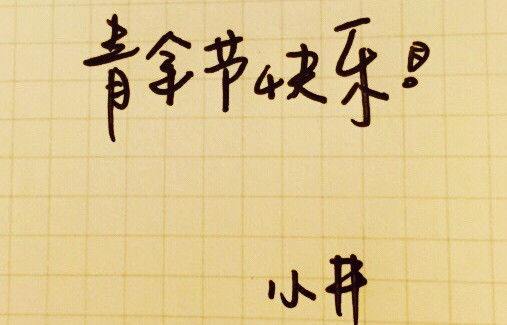 青年节快乐!
小井